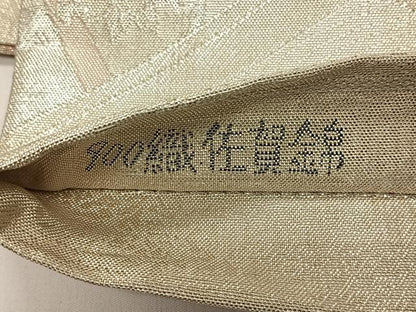 900織佐賀錦